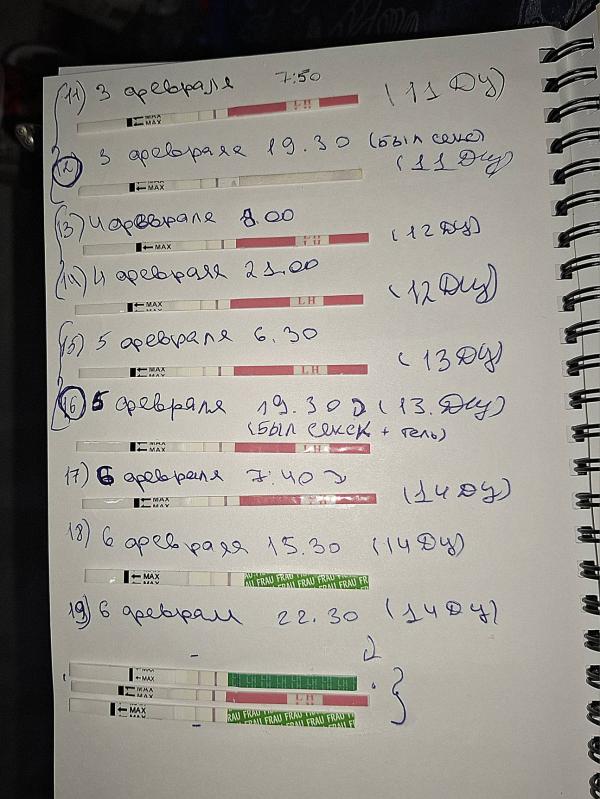 11) 3 февраля 7:50 (11 ДЦ)
MAX
MAX LH
12) 3 февраля 19.30 (был секс)
(11 ДЦ)
MAX
13) 4 февраля 8.00
(12 ДЦ)
MAX LH
14) 4 февраля 21.00
(12 ДЦ)
MAX
MAX LH
15) 5 февраля 6.30
(13 ДЦ)
MAX
MAX LH
16) 5 февраля 19.30 (13. ДЦ)
(был секск + гель)
MAX
MAX LH
17) 6 февраля 7:40
(14 ДЦ)
MAX
MAX LH
18) 6 февраля 15.30 (14 ДЦ)
MAX FRAU FRAU FRAU FRAU FR
19) 6 феврам 22.30 (14 ДЦ)
MAX LH LH LH LH LH
MAX
MAX LH
MAX RAU FRAU FRAU FRAU FRAU